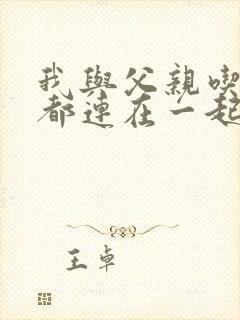 我與父親喫
都連在一起
王卓